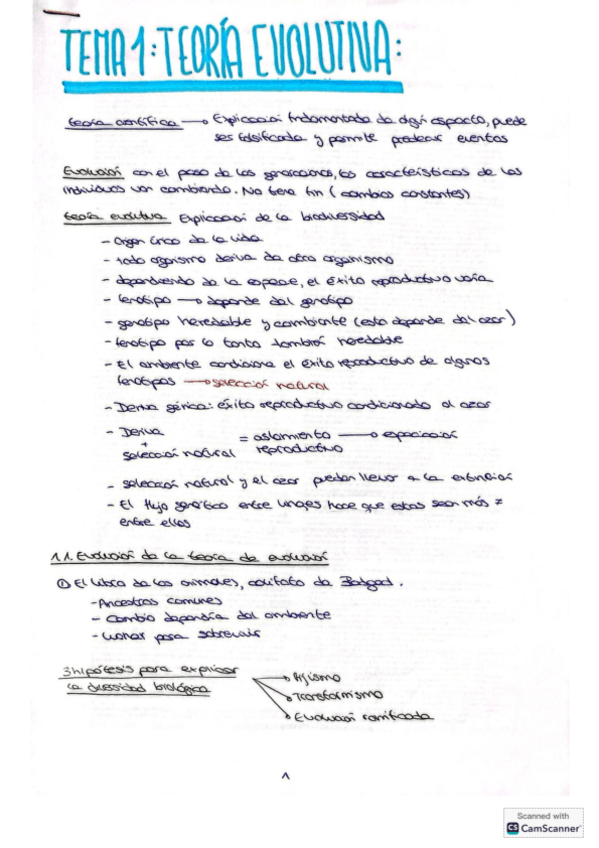 TEMA 1: TEORÍA EVOLUTIVA:
teoría científica → Explicación fundamentada de algún aspecto, puede
ser falsificada y permite predecir eventos
Evolución con el paso de las generaciones, las características de los
individuos van cambiando. No tiene fin (cambios constantes)
teoría evolutiva Explicación de la biodiversidad
- Origen único de la vida
- todo organismo deriva de otro organismo
- dependiendo de la especie, el éxito reproductivo varía
- fenotipo → depende del genotipo
- genotipo heredable y cambiante (esto depende del azar)
- fenotipo por lo tanto también heredable
- El ambiente condiciona el éxito reproductivo de algunos
fenotipos → selección natural
- Deriva génica: éxito reproductivo condicionado al azar
- Deriva
+
selección natural = aislamiento reproductivo → especiación
- selección natural y el azar pueden llevar a la extinción
- El flujo genético entre linajes hace que estas sean más ≠
entre ellos
1.1. Evolución de la teoría de evolución
① El libro de los animales, califato de Badgad.
- Ancestros comunes
- Cambio dependía del ambiente
- Luchar para sobrevivir
3 hipótesis para explicar
la diversidad biológica
→ Fijismo
→ Transformismo
→ Evolución ramificada
1
Scanned with
CS CamScanner